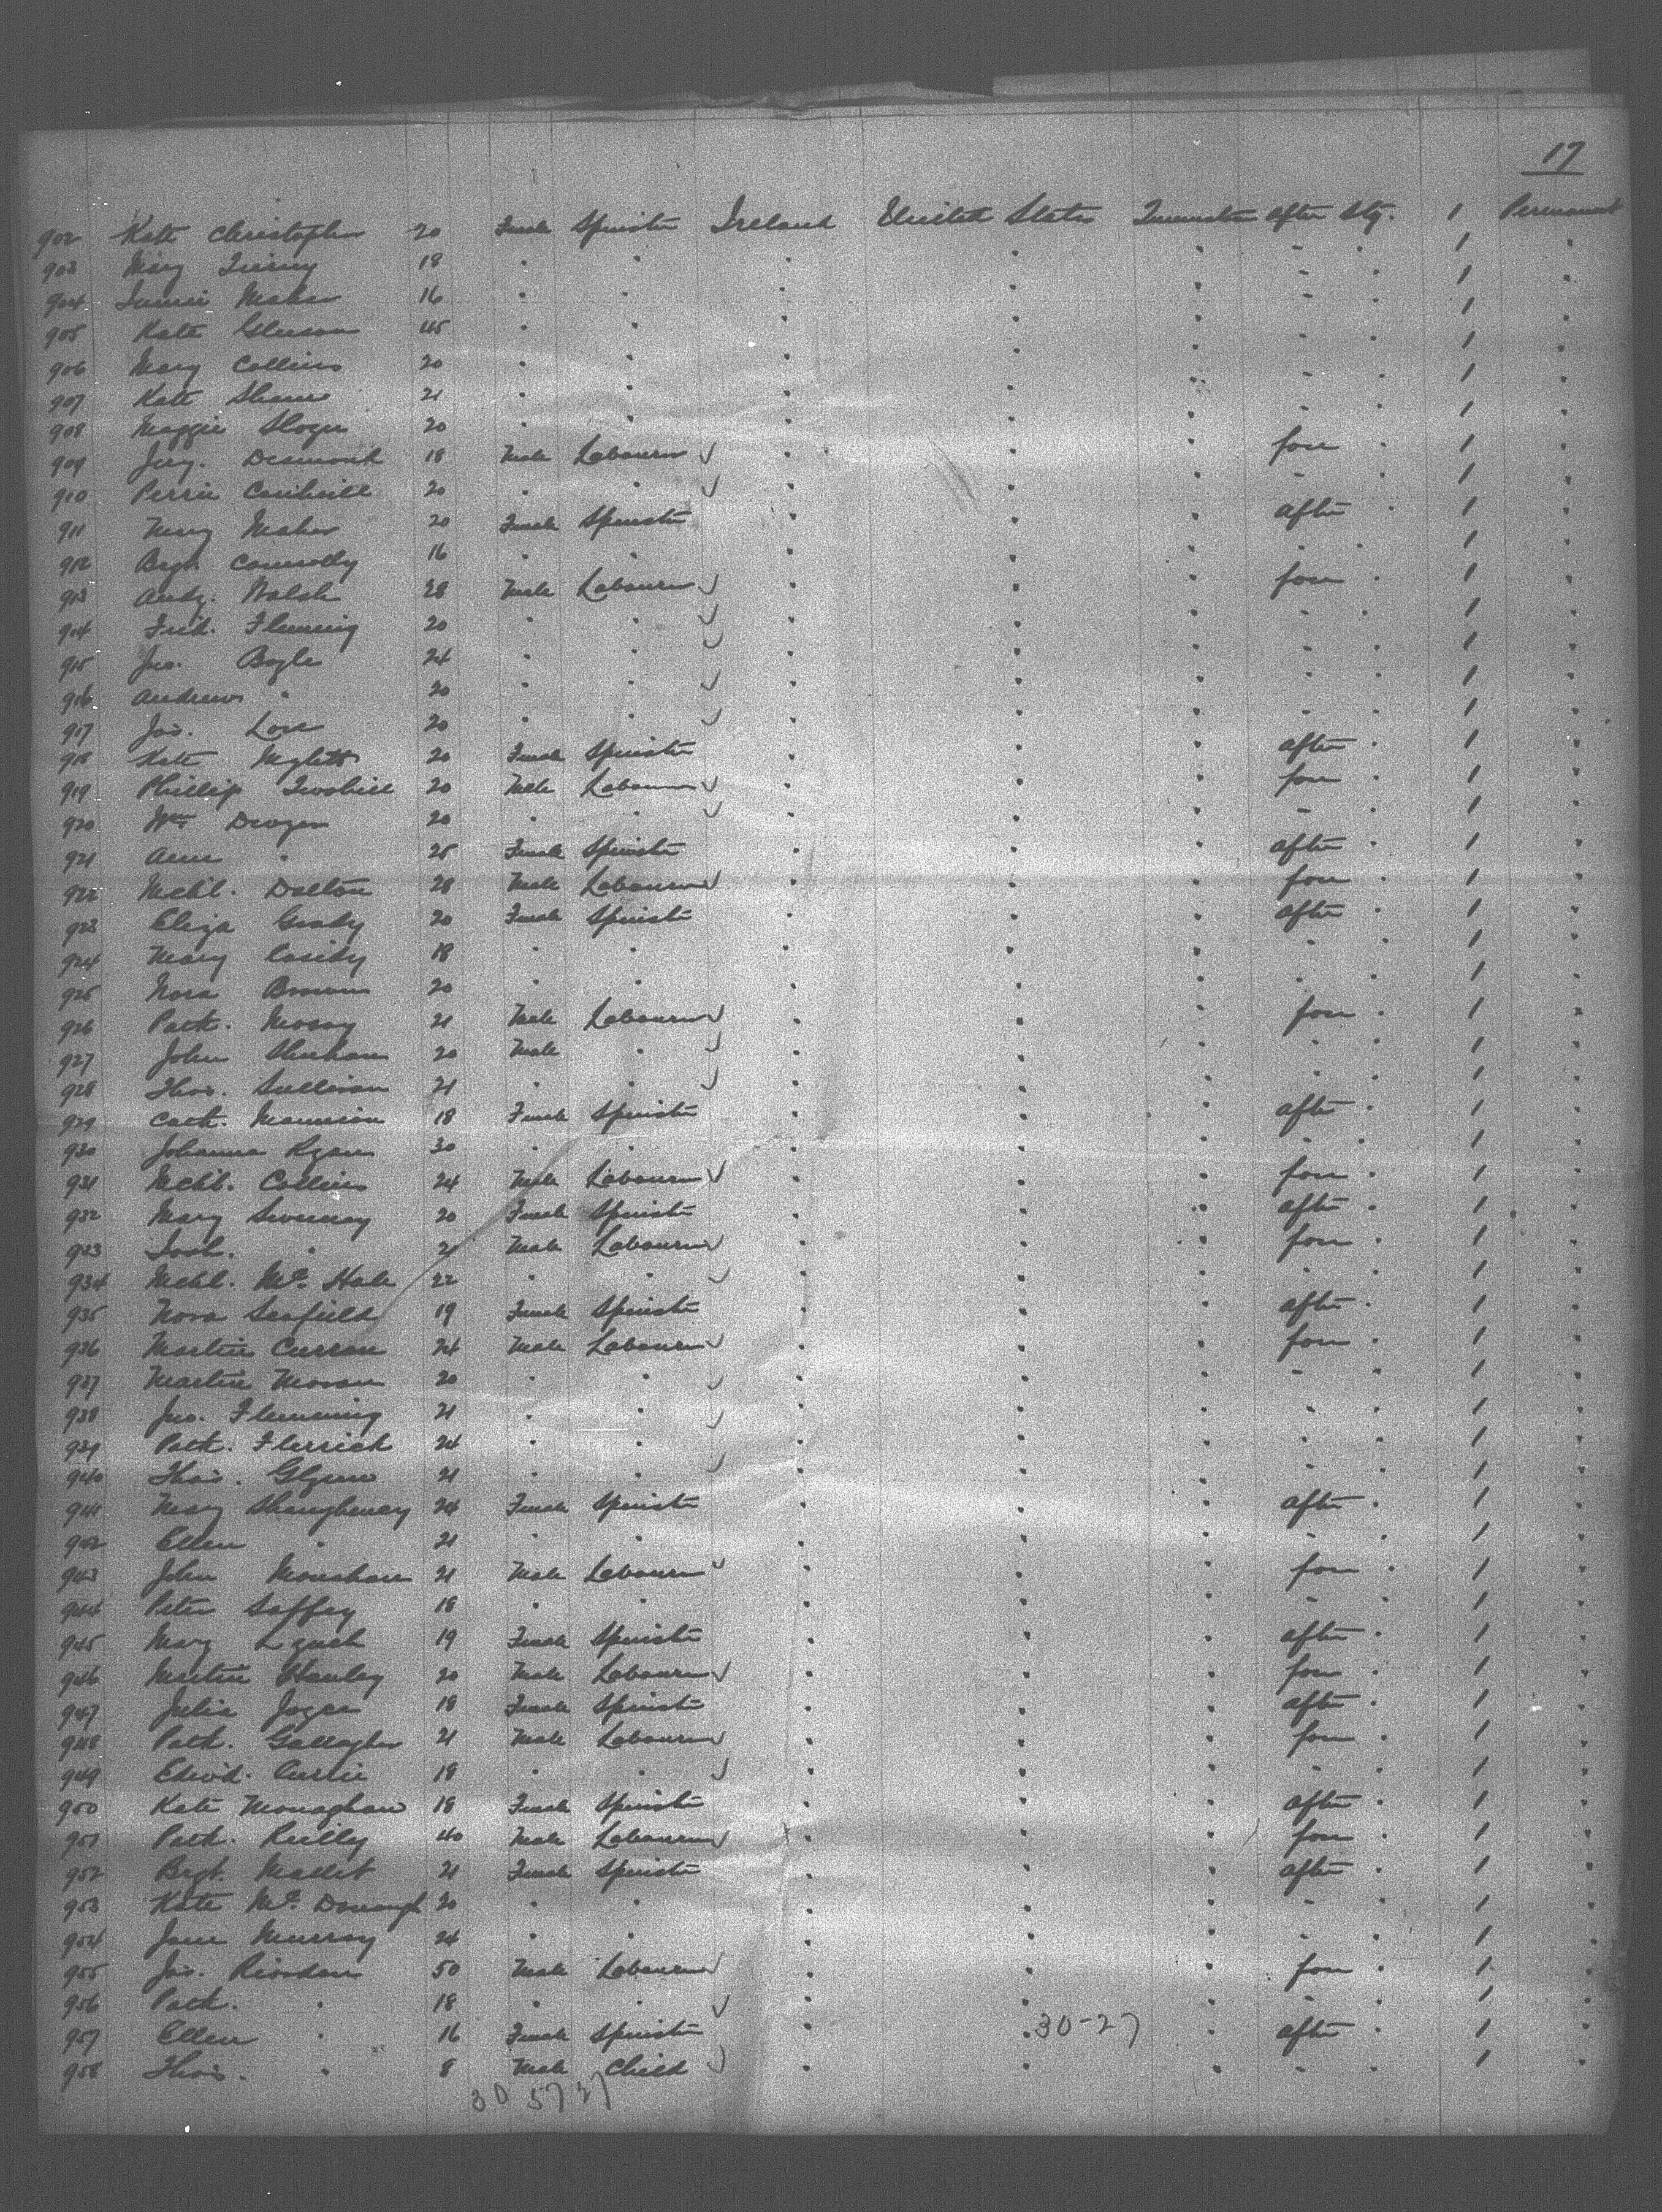 17
902 Kate Christopher 20 Female Spinster Ireland United States Queenstown after Stg. 1 Permanent
903 Mary Tierny 18 " " " " " " " 1 "
904 Maher 16 " " " " " " " 1 "
905 Kate Gleeson 45 " " " " " " " 1 "
906 Mary Collins 20 " " " " " " " 1 "
907 Kate 21 " " " " " " " 1 "
908 Maggie 20 " " " " " " " 1 "
909 Jery. Desmond 18 Male Labourer " " " fore " 1 "
910 20 " " " " " " " 1 "
911 Mary Maher 20 Female Spinster " " " after " 1 "
912 Bgt. Connolly 16 " " " " " " " 1 "
913 Andy. Walsh 28 Male Labourer " " " fore " 1 "
914 Fred. Fleming 20 " " " " " " " 1 "
915 Jno. Boyle 24 " " " " " " " 1 "
916 Andrew " 20 " " " " " " " 1 "
917 Jas. 20 " " " " " " " 1 "
918 Kate 20 Female Spinster " " " after " 1 "
919 Phillip 20 Male Labourer " " " fore " 1 "
920 Wm. 20 " " " " " " " 1 "
921 Anne " 25 Female Spinster " " " after " 1 "
922 Mchl. Dalton 28 Male Labourer " " " fore " 1 "
923 Eliza Grady 20 Female Spinster " " " after " 1 "
924 Mary Casidy 18 " " " " " " " 1 "
925 Nora Brown 20 " " " " " " " 1 "
926 Patk. 21 Male Labourer " " " fore " 1 "
927 John Sheehan 20 Male " " " " " " 1 "
928 Thos. Sullivan 21 " " " " " " " 1 "
929 Cath. Mannion 18 Female Spinster " " " after " 1 "
930 Johanna Ryan 30 " " " " " " " 1 "
931 Mchl. Collins 24 Male Labourer " " " fore " 1 "
932 Mary Sweeney 20 Female Spinster " " " after " 1 "
933 " 21 Male Labourer " " " fore " 1 "
934 Mchl. Mc. Hale 22 " " " " " " " 1 "
935 Nora 19 Female Spinster " " " after " 1 "
936 Martin Curran 24 Male Labourer " " " fore " 1 "
937 Martin Moran 20 " " " " " " " 1 "
938 Jno. Flemming 21 " " " " " " " 1 "
939 Patk. 24 " " " " " " " 1 "
940 Thos. Glynn 21 " " " " " " " 1 "
941 Mary Shaughnesy 24 Female Spinster " " " after " 1 "
942 Ellen " 21 " " " " " " " 1 "
943 John Monahan 21 Male Labourer " " " fore " 1 "
944 Peter 18 " " " " " " " 1 "
945 Mary Lynch 19 Female Spinster " " " after " 1 "
946 Martin 20 Male Labourer " " " fore " 1 "
947 Julia Joyce 18 Female Spinster " " " after " 1 "
948 Patk. Gallagher 21 Male Labourer " " " fore " 1 "
949 Edwd. 18 " " " " " " " 1 "
950 Kate Monaghan 18 Female Spinster " " " after " 1 "
951 Patk. Reilly 40 Male Labourer " " " fore " 1 "
952 Bgt. 21 Female Spinster " " " after " 1 "
953 Kate Mc. Donough 20 " " " " " " " 1 "
954 Jane Murray 24 " " " " " " " 1 "
955 Jas. Riordan 50 Male Labourer " " " fore " 1 "
956 Patk. " 18 " " " " " " " 1 "
957 Ellen " 16 Female Spinster " " 30-27 " after " 1 "
958 Thos. " 8 Male Child " " " " " 1 "
30 57 27